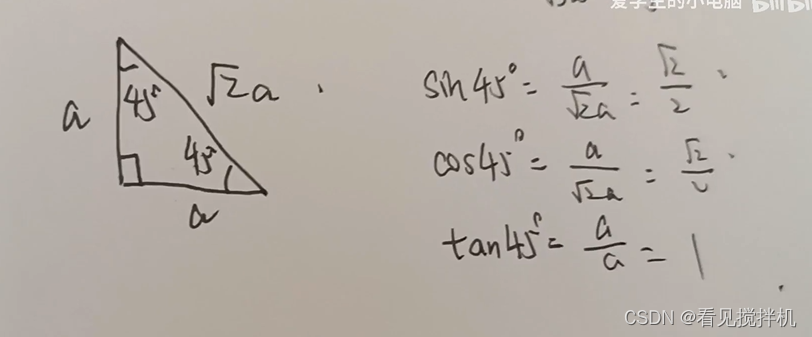 爱学生的小电脑 bilibili
a
45°
√2a
45°
a
sin45° = a/√2a = √2/2
cos45° = a/√2a = √2/2
tan45° = a/a = 1
CSDN @看见搅拌机